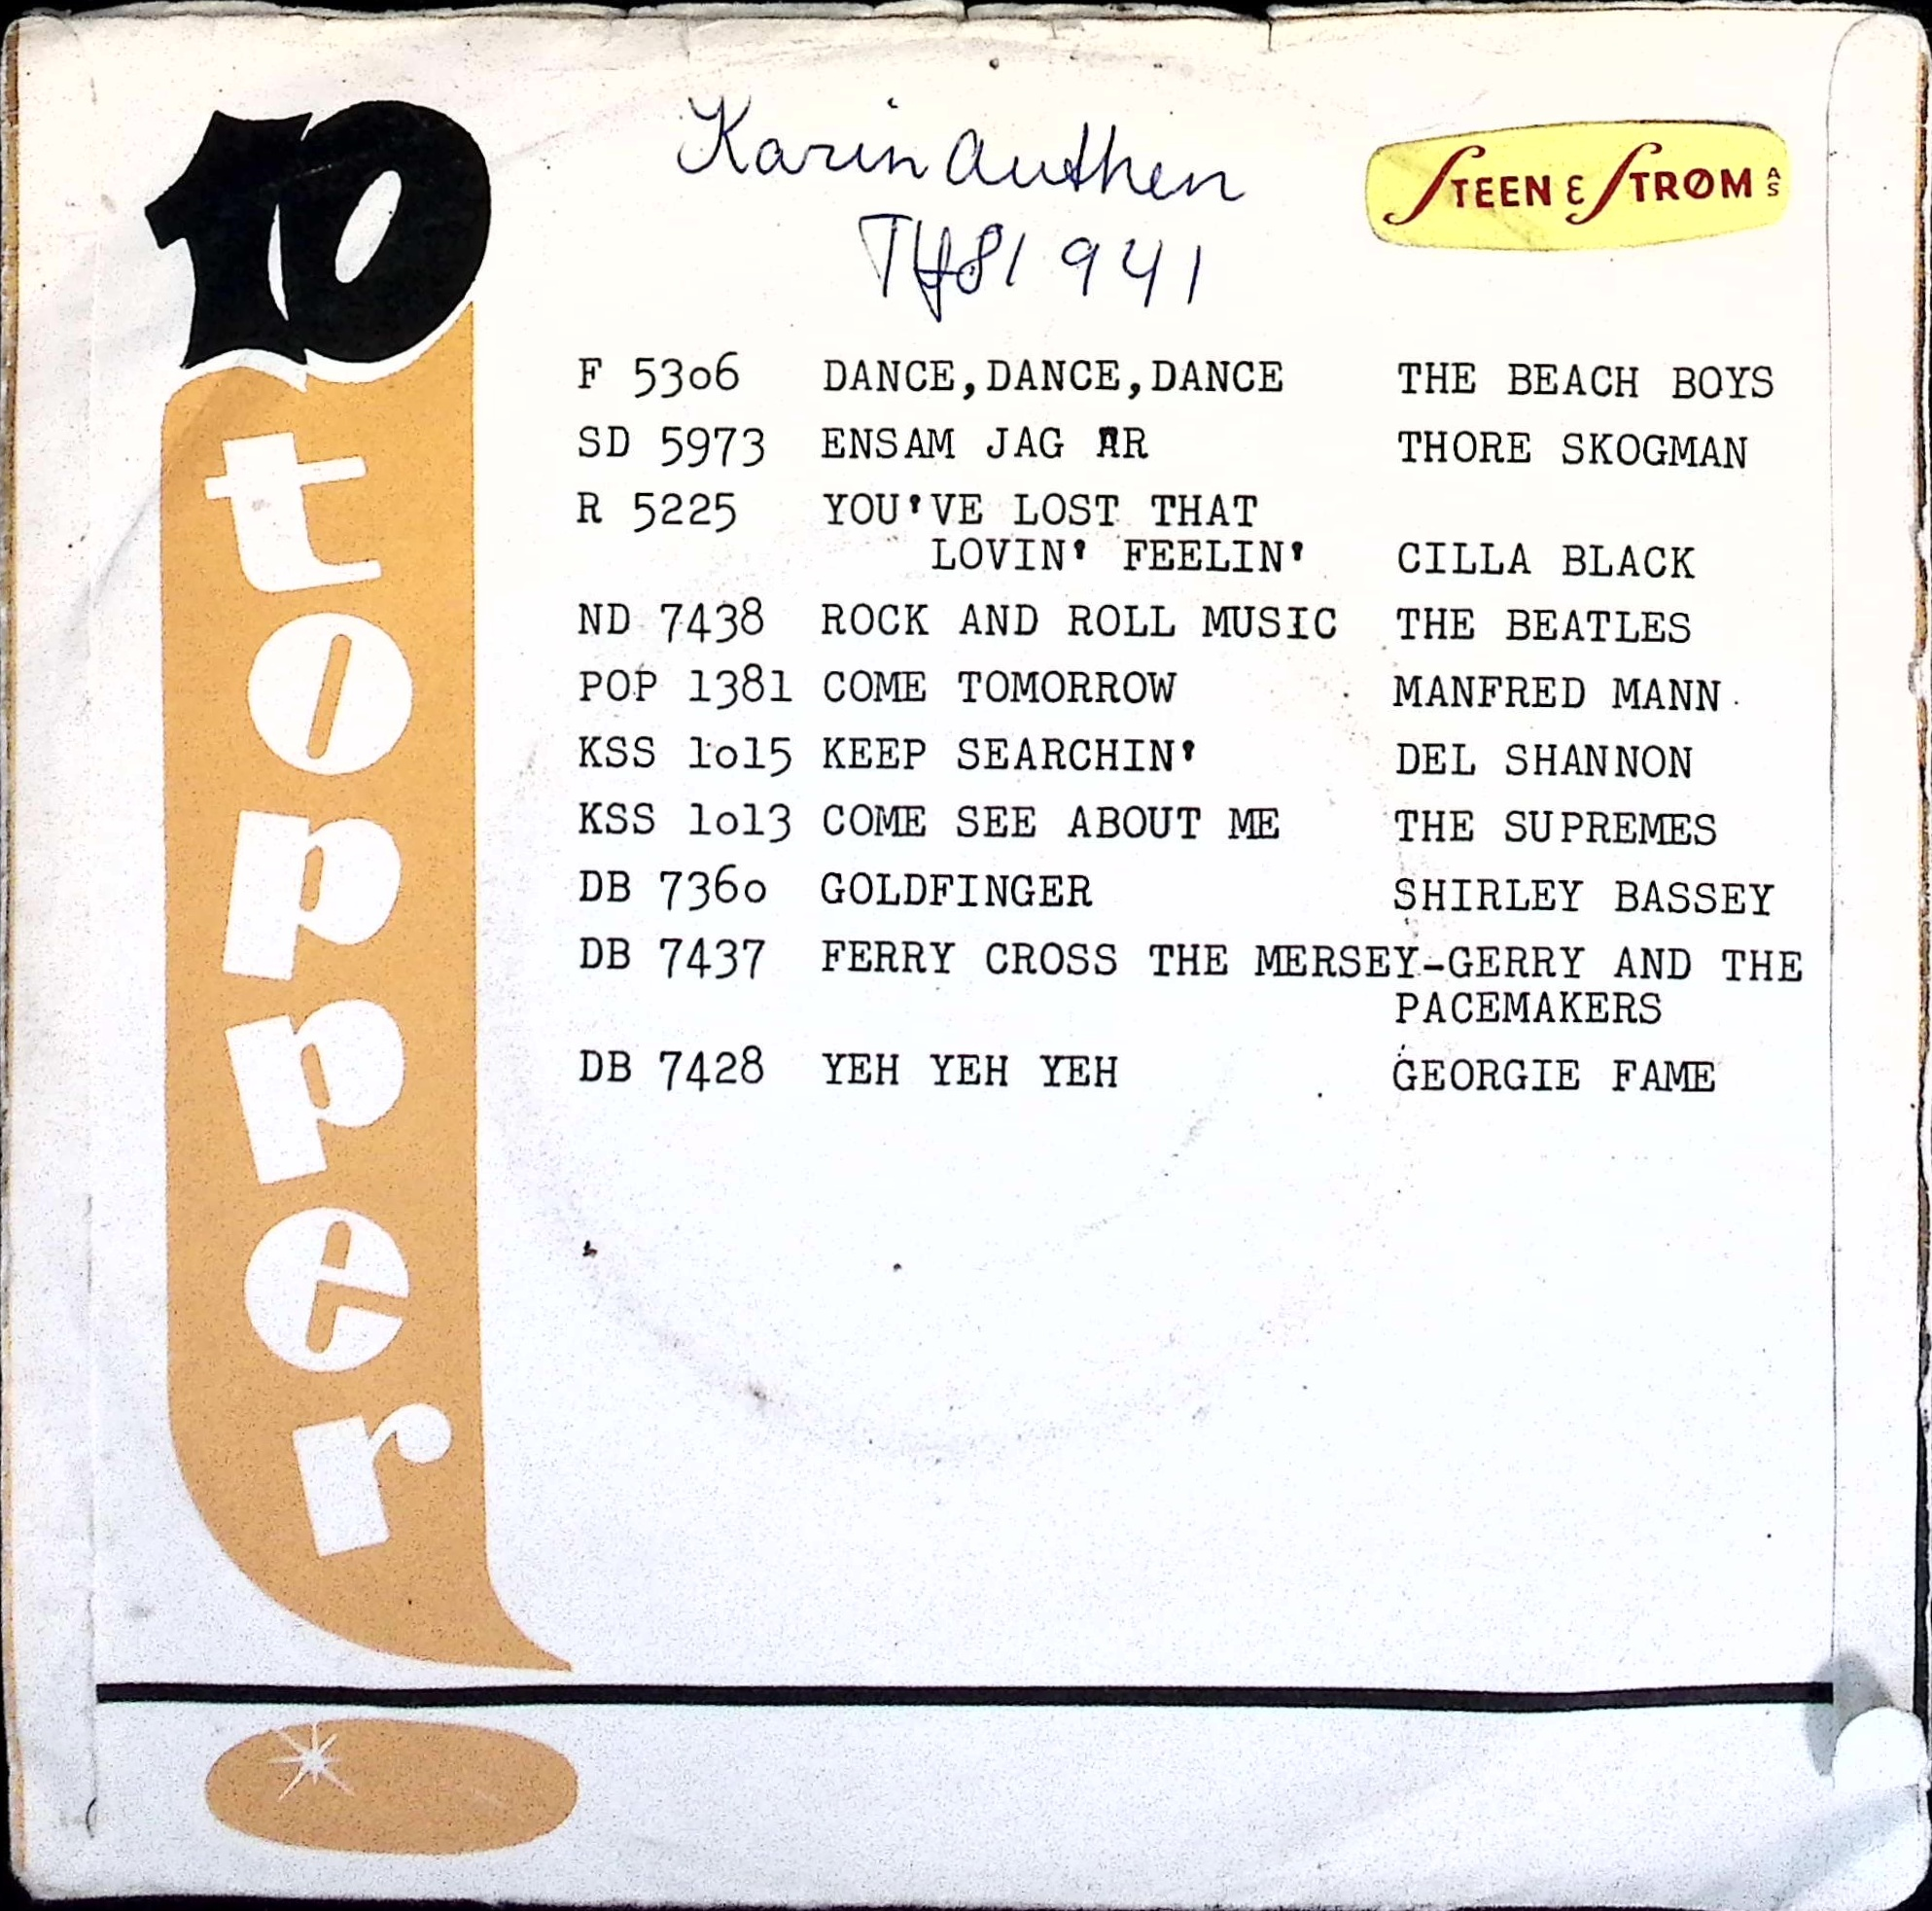 10 topper
Karin Authen
Tlf 81 941
STEEN & STRØM A/S
F 5306 DANCE,DANCE,DANCE THE BEACH BOYS
SD 5973 ENSAM JAG ÄR THORE SKOGMAN
R 5225 YOU'VE LOST THAT
LOVIN' FEELIN' CILLA BLACK
ND 7438 ROCK AND ROLL MUSIC THE BEATLES
POP 1381 COME TOMORROW MANFRED MANN
KSS 1015 KEEP SEARCHIN' DEL SHANNON
KSS 1013 COME SEE ABOUT ME THE SUPREMES
DB 7360 GOLDFINGER SHIRLEY BASSEY
DB 7437 FERRY CROSS THE MERSEY-GERRY AND THE
PACEMAKERS
DB 7428 YEH YEH YEH GEORGIE FAME